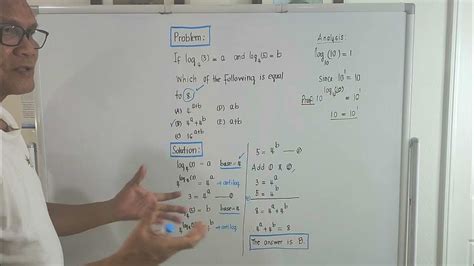 Problem:
If log₄(3) = a and log₄(5) = b
Which of the following is equal
to 8
(A) 4^(a+b) (D) ab
(B) 4^a + 4^b (E) a+b
(C) 16^(a+b)
Analysis:
log₁₀(10) = 1
Since 10¹ = 10
Proof: 10^(log₁₀(10)) = 10¹
10 = 10¹
Solution:
log₄(3) = a base = 4
4^(log₄(3)) = 4^a → antilog
3 = 4^a — ①
log₄(5) = b base = 4
→ antilog
5 = 4^b — ②
Add ① & ②
3 = 4^a
5 = 4^b
8 = 4^a + 4^b
4^a + 4^b = 8
The answer is B.